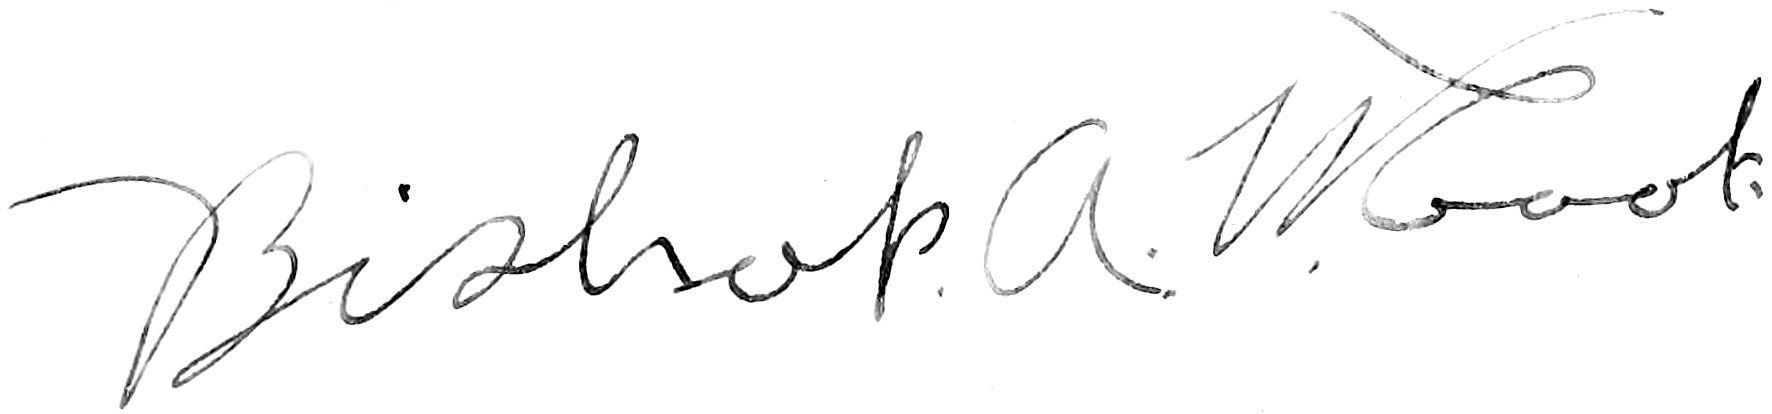 Bishop. A. W. Cook.